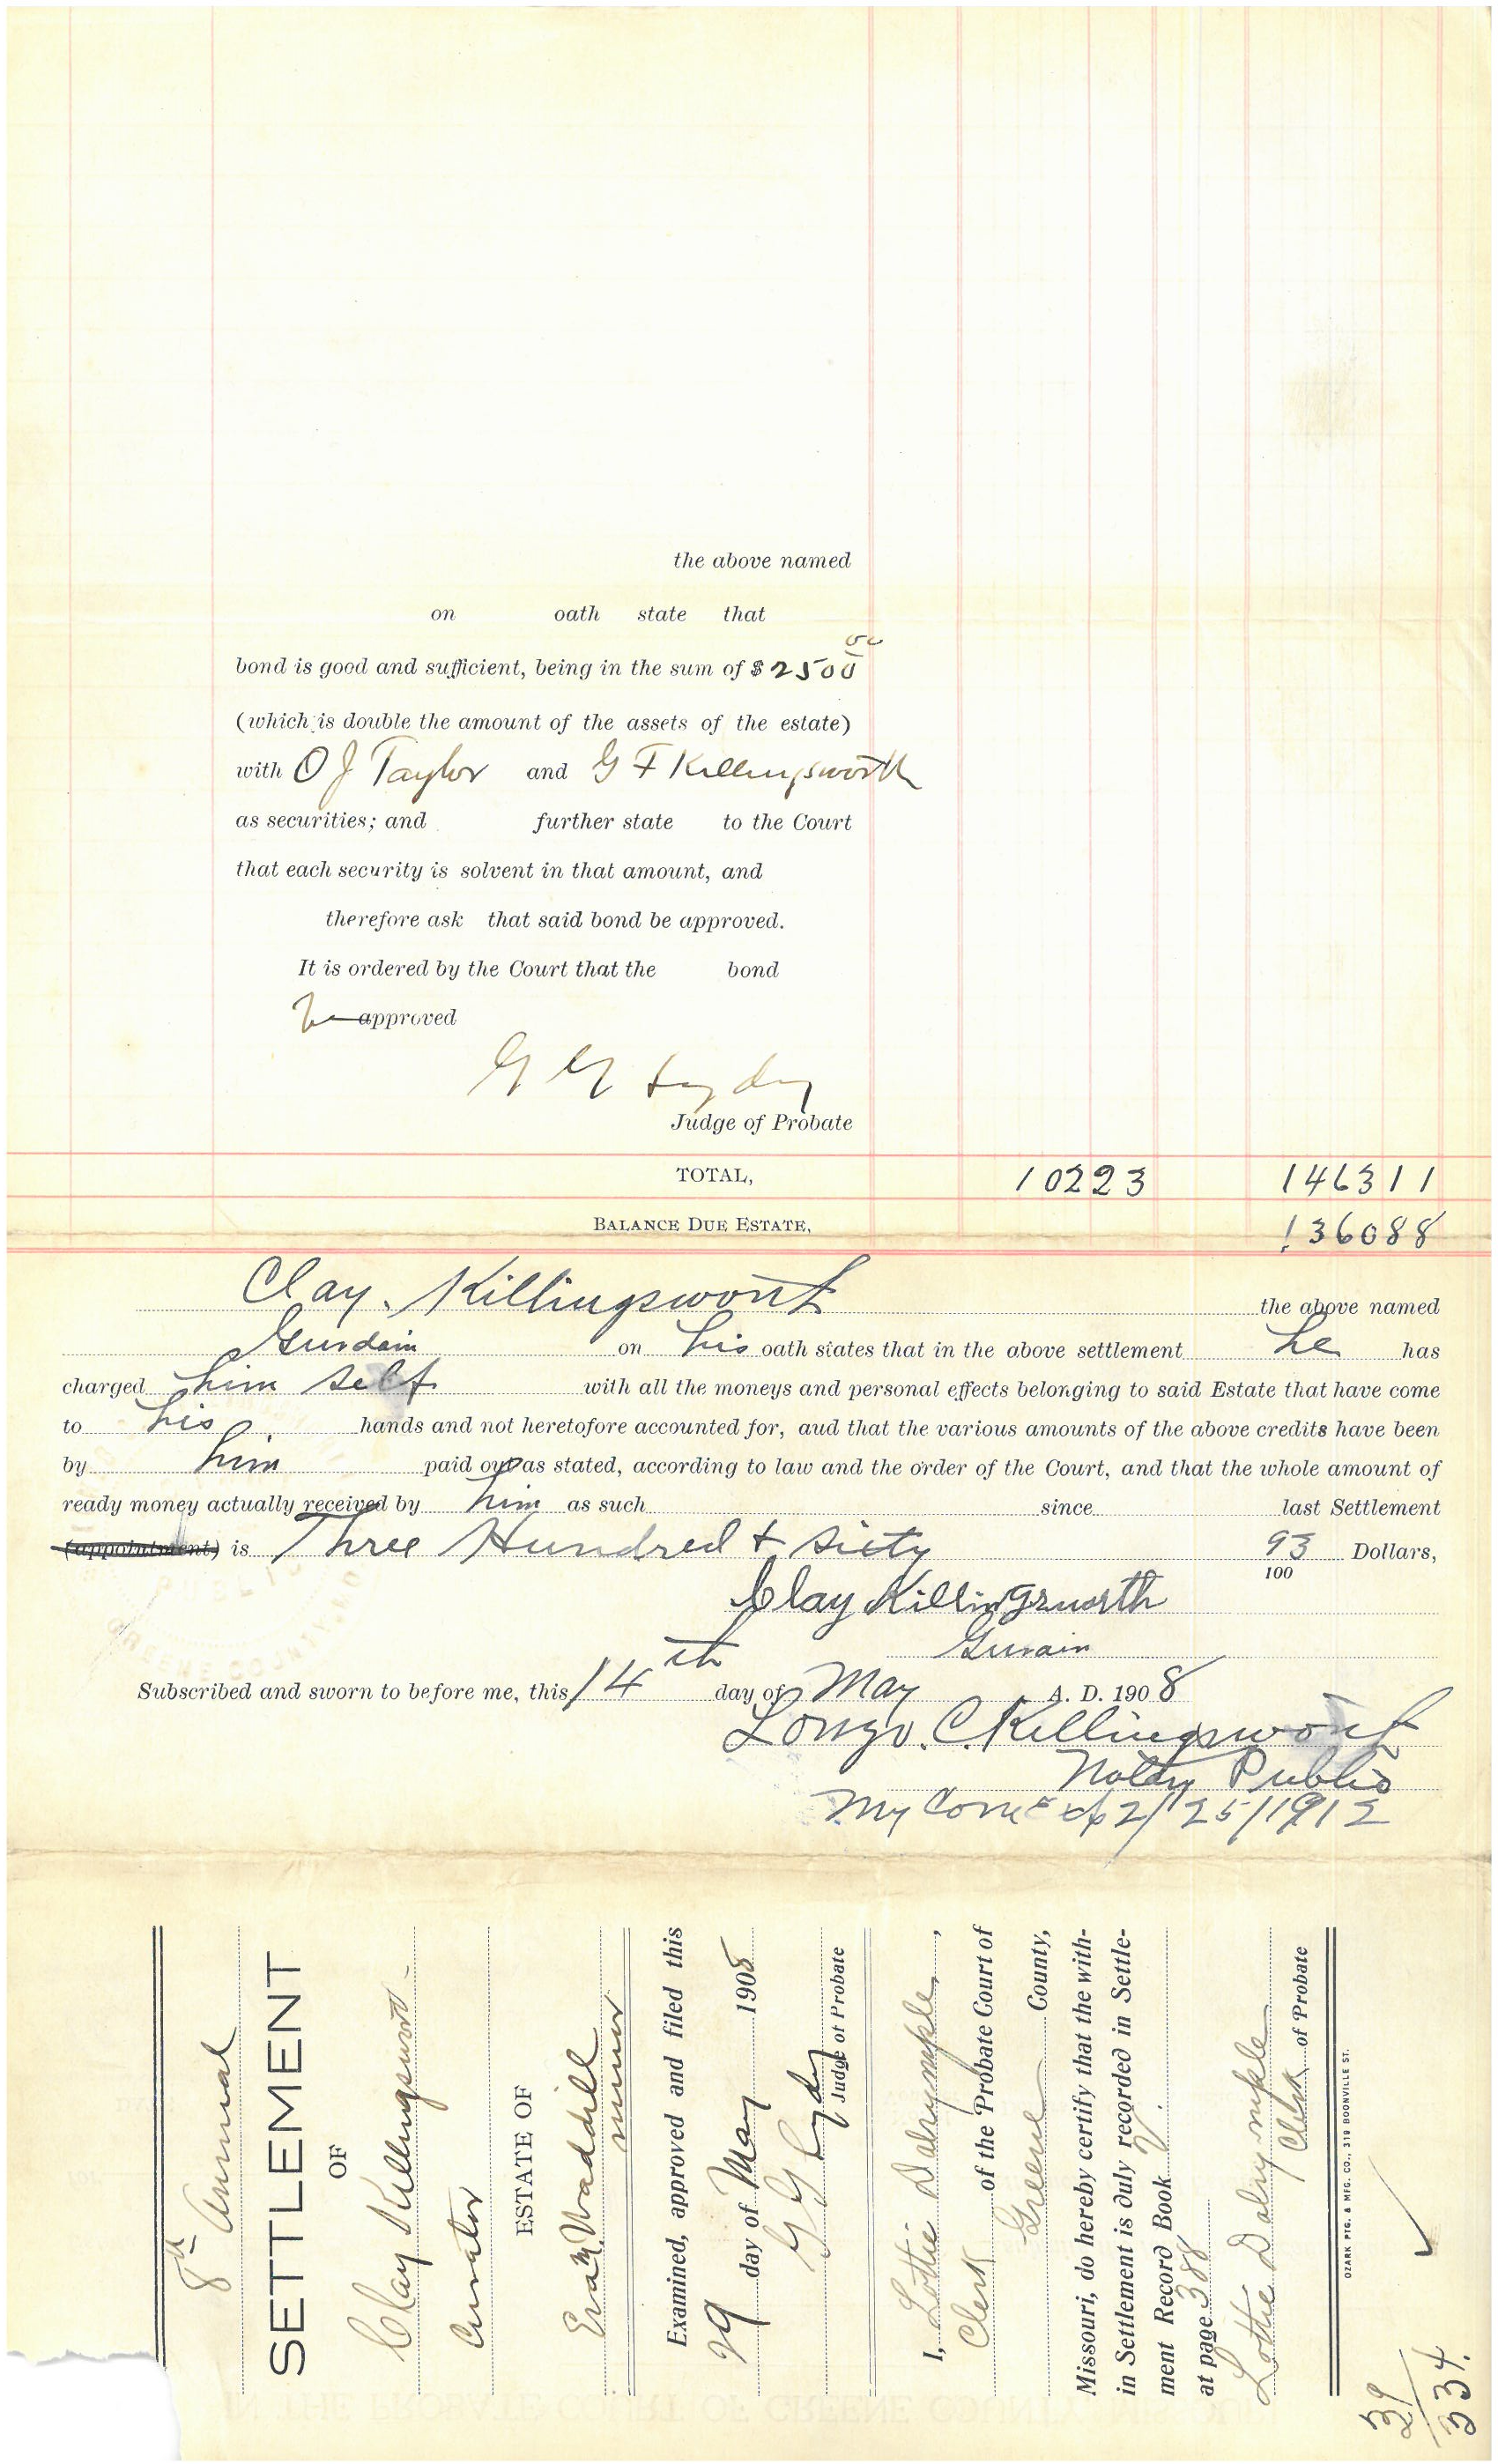 the above named
on oath state that
bond is good and sufficient, being in the sum of $ 2500 00
(which is double the amount of the assets of the estate)
with O J Taylor and G F Killingsworth
as securities; and further state to the Court
that each security is solvent in that amount, and
therefore ask that said bond be approved.
It is ordered by the Court that the bond
be approved
G G Lydy
Judge of Probate
TOTAL, 10223 146311
BALANCE DUE ESTATE, 136088
Clay Killingswort the above named
Gurdain on his oath states that in the above settlement he has
charged him self with all the moneys and personal effects belonging to said Estate that have come
to his hands and not heretofore accounted for, aud that the various amounts of the above credits have been
by him paid out as stated, according to law and the order of the Court, and that the whole amount of
ready money actually received by him as such since last Settlement
(appointment) is Three Hundred & Sixty 93/100 Dollars,
Clay Killingsworth
Gurain
Subscribed and sworn to before me, this 14th day of May A. D. 1908
Lonzo. C. Killingswort
Notary Public
My Com Exp 2/25/1912
8th Annual
SETTLEMENT
OF
Clay Killingswort
Curator
ESTATE OF
Eva M. Waddill
minor
Examined, approved and filed this
29 day of May 1908
G G Lydy
Judge of Probate
I, Lottie Dalrymple,
Clerk of the Probate Court of
Greene County,
Missouri, do hereby certify that the with-
in Settlement is duly recorded in Settle-
ment Record Book V.
at page 388
Lottie Dalrymple
Clerk of Probate
OZARK PTG. & MFG. CO., 319 BOONVILLE ST.
39/334.